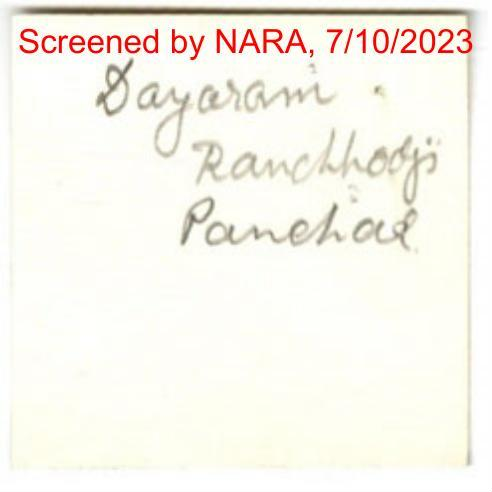 Screened by NARA, 7/10/2023
Dayaram
Ranchhodji
Panchal